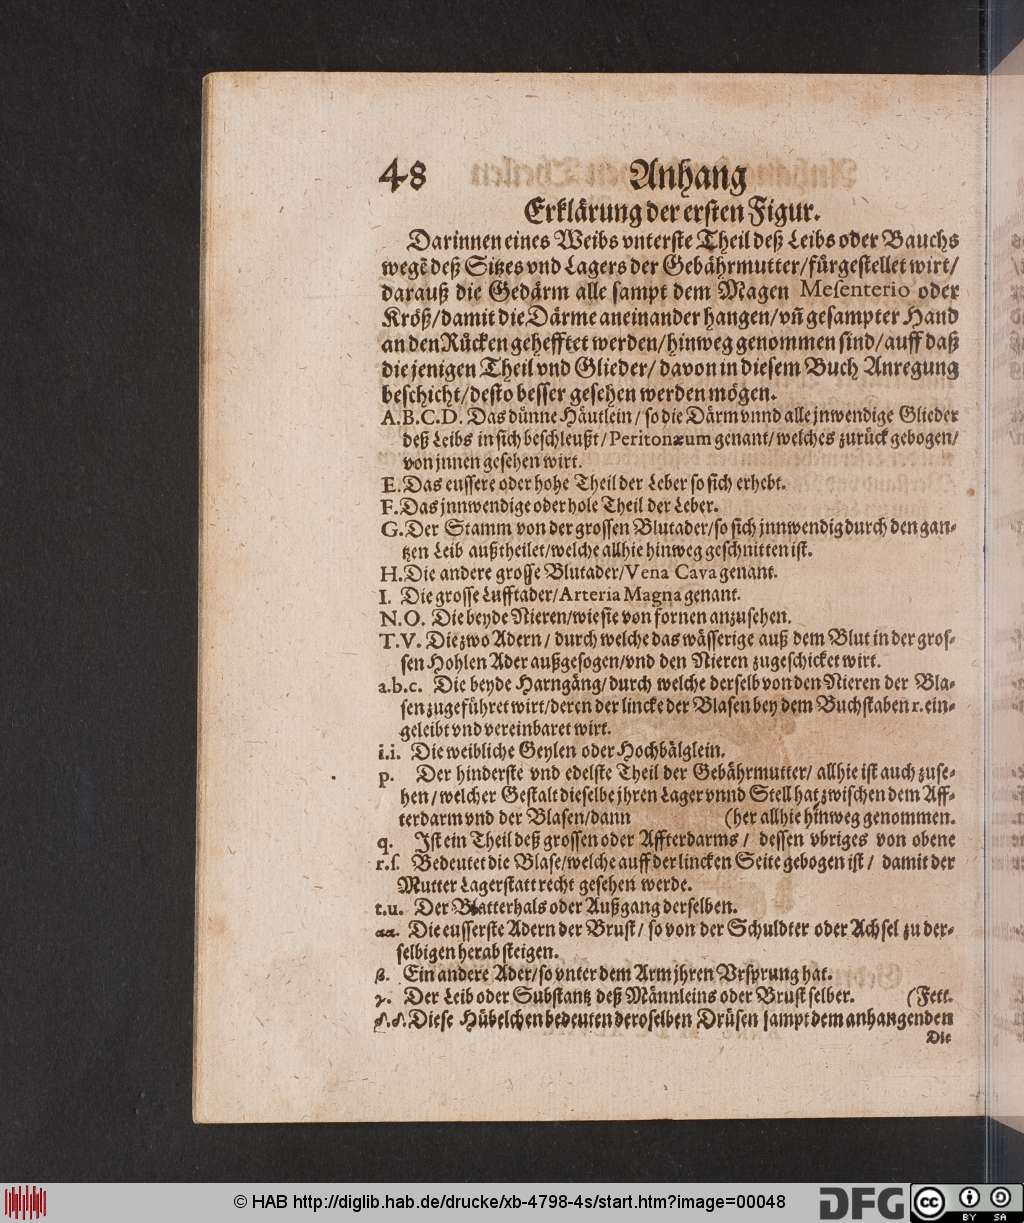 48 Anhang
Erklärung der ersten Figur.
Darinnen eines Weibs vnterste Theil deß Leibs oder Bauchs
wegẽ deß Sitzes vnd Lagers der Gebährmutter/fürgestellet wirt/
darauß die Gedärm alle sampt dem Magen Mesenterio oder
Kröß/damit die Därme aneinander hangen/vñ gesampter Hand
an den Rücken gehefftet werden/hinweg genommen sind/auff daß
die jenigen Theil vnd Glieder/ davon in diesem Buch Anregung
beschicht/desto besser gesehen werden mögen.
A.B.C.D. Das dünne Häutlein/ so die Därm vnnd alle jnwendige Glieder
deß Leibs in sich beschleußt/Peritonæum genant/welches zurück gebogen/
von jnnen gesehen wirt.
E. Das eussere oder hohe Theil der Leber so sich erhebt.
F. Das jnnwendige oder hole Theil der Leber.
G. Der Stamm von der grossen Blutader/so sich jnnwendig durch den gan-
tzen Leib außtheilet/welche allhie hinweg geschnitten ist.
H. Die andere grosse Blutader/Vena Cava genant.
I. Die grosse Lufftader/Arteria Magna genant.
N.O. Die beyde Nieren/wie sie von fornen anzusehen.
T.V. Die zwo Adern/ durch welche das wässerige auß dem Blut in der gros-
sen Hohlen Ader außgesogen/vnd den Nieren zugeschicket wirt.
a.b.c. Die beyde Harngäng/durch welche derselb von den Nieren der Bla-
sen zugeführet wirt/deren der lincke der Blasen bey dem Buchstaben r. ein-
geleibt vnd vereinbaret wirt.
i.i. Die weibliche Geylen oder Hochbälglein.
p. Der hinderste vnd edelste Theil der Gebährmutter/ allhie ist auch zuse-
hen/welcher Gestalt dieselbe jhren Lager vnnd Stell hat zwischen dem Aff-
terdarm vnd der Blasen/dann (her allhie hinweg genommen.
q. Ist ein Theil deß grossen oder Affterdarms/ dessen vbriges von obene
r.s. Bedeutet die Blase/welche auff der lincken Seite gebogen ist/ damit der
Mutter Lagerstatt recht gesehen werde.
t.u. Der Blatterhals oder Außgang derselben.
αα. Die eusserste Adern der Brust/ so von der Schuldter oder Achsel zu der-
selbigen herab steigen.
β. Ein andere Ader/so vnter dem Arm jhren Vrsprung hat.
γ. Der Leib oder Substantz deß Männleins oder Brust selber. (Fett.
δ.δ. Diese Hübelchen bedeuten deroselben Drüsen sampt dem anhangenden
Die
© HAB http://diglib.hab.de/drucke/xb-4798-4s/start.htm?image=00048
DFG
cc BY SA